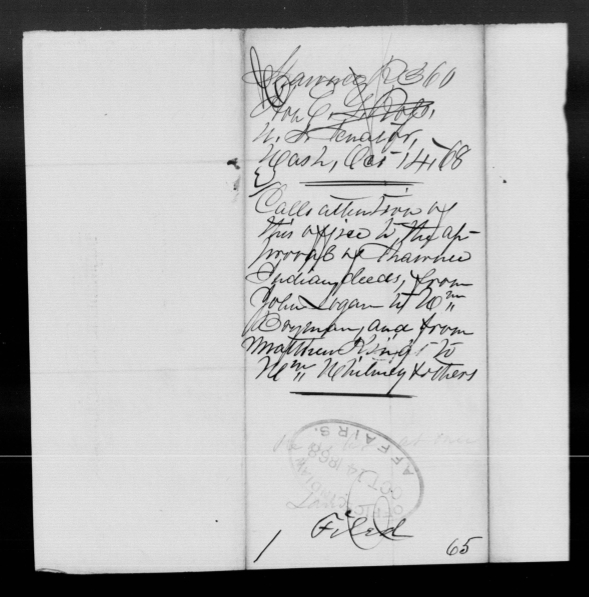 Shawnee R 360
Hon E. G. Ross,
U. S. Senator,
Wash, Oct 14, '68
Calls attention of
this office to the ap-
proval of Shawnee
Indian deeds, from
John Logan to Wm
and from
Matthew King's to
Wm Whitney & others
OFFICE INDIAN AFFAIRS.
OCT 14 1868
Filed
1
65